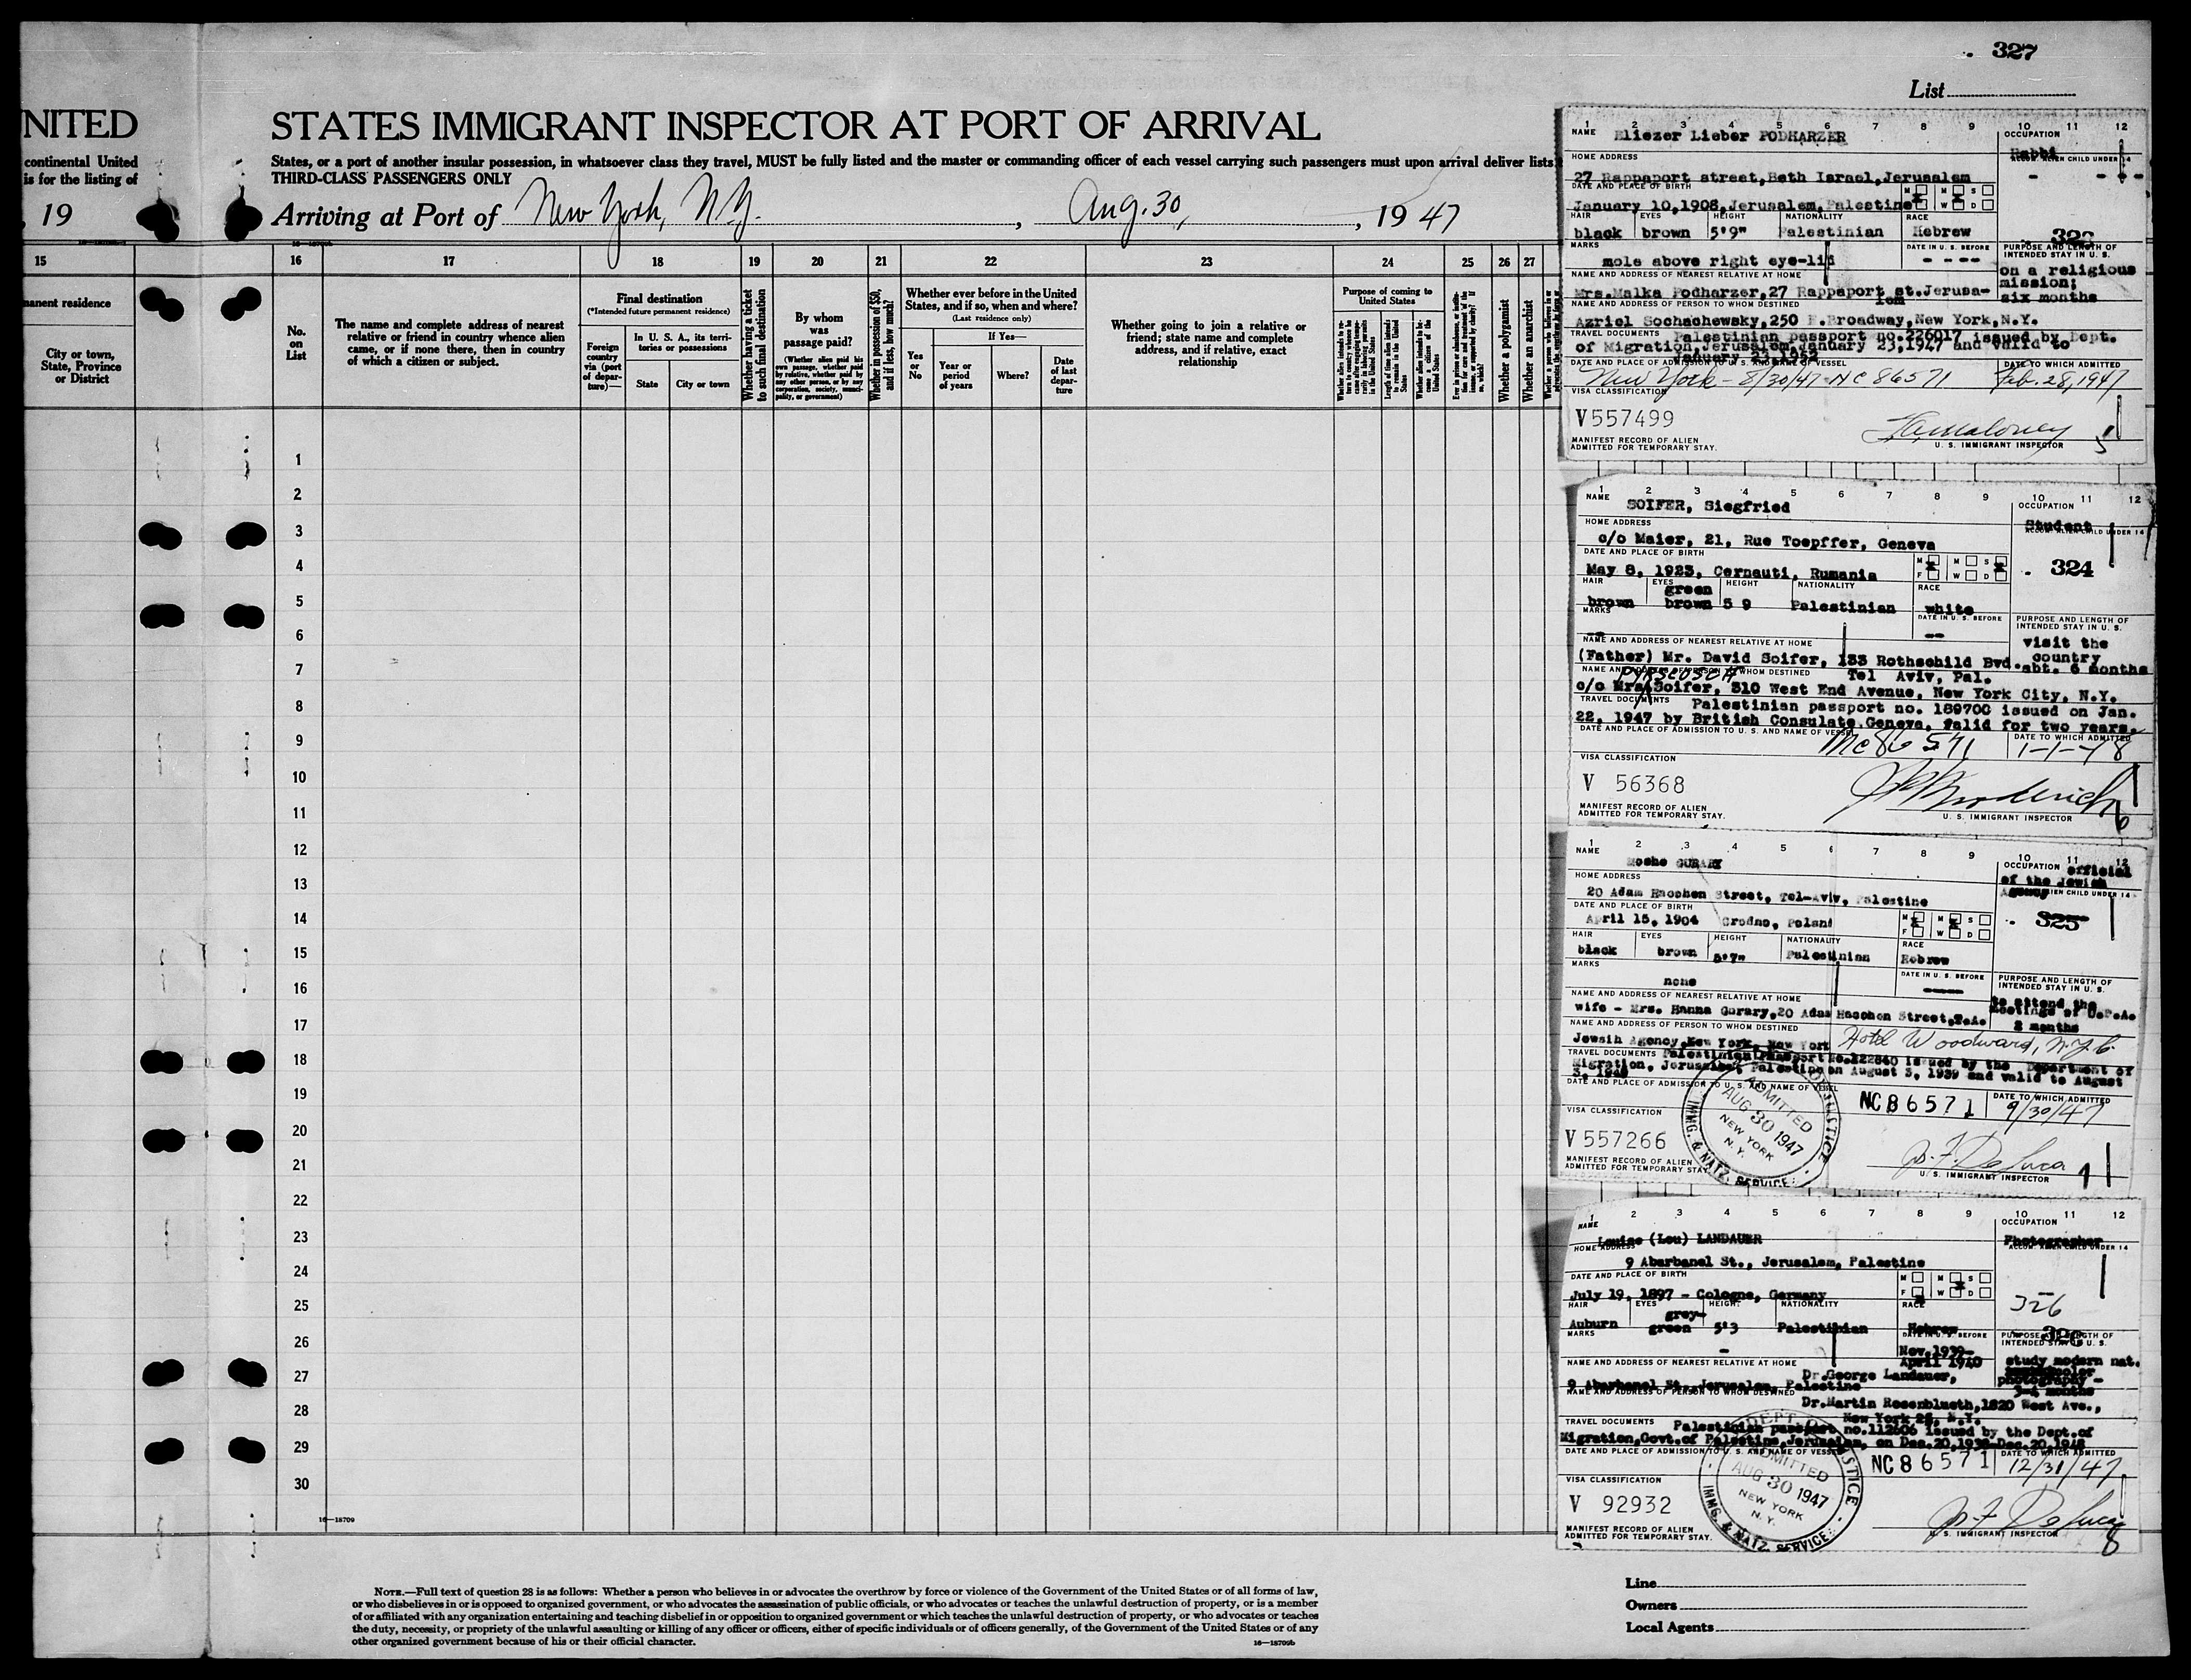 327
List
NITED
STATES IMMIGRANT INSPECTOR AT PORT OF ARRIVAL
continental United
is for the listing of
States, or a port of another insular possession, in whatsoever class they travel, MUST be fully listed and the master or commanding officer of each vessel carrying such passengers must upon arrival deliver lists
THIRD-CLASS PASSENGERS ONLY
, 19
Arriving at Port of New York, N.Y. , Aug. 30, , 1947
15
16
17
18
19
20
21
22
23
24
25
26
27
manent residence
City or town,
State, Province
or District
No.
on
List
The name and complete address of nearest
relative or friend in country whence alien
came, or if none there, then in country
of which a citizen or subject.
Final destination
(*Intended future permanent residence)
Foreign
country
via (port
of depar-
ture)—
In U. S. A., its terri-
tories or possessions
State
City or town
Whether having a ticket
to such final destination
By whom
was
passage paid?
(Whether alien paid his
own passage, whether paid
by relative, whether paid by
any other person, or by any
corporation, society, munici-
pality, or government)
Whether in possession of $50,
and if less, how much?
Whether ever before in the United
States, and if so, when and where?
(Last residence only)
Yes
or
No
If Yes—
Year or
period
of years
Where?
Date
of last
depar-
ture
Whether going to join a relative or
friend; state name and complete
address, and if relative, exact
relationship
Purpose of coming to
United States
Whether a polygamist
Whether an anarchist
1
2
3
4
5
6
7
8
9
10
11
12
13
14
15
16
17
18
19
20
21
22
23
24
25
26
27
28
29
30
16—18709
NOTE.—Full text of question 28 is as follows: Whether a person who believes in or advocates the overthrow by force or violence of the Government of the United States or of all forms of law,
or who disbelieves in or is opposed to organized government, or who advocates the assassination of public officials, or who advocates or teaches the unlawful destruction of property, or is a member
of or affiliated with any organization entertaining and teaching disbelief in or opposition to organized government or which teaches the unlawful destruction of property, or who advocates or teaches
the duty, necessity, or propriety of the unlawful assaulting or killing of any officer or officers, either of specific individuals or of officers generally, of the Government of the United States or of any
other organized government because of his or their official character.
16—18709b
1 2 3 4 5 6 7 8 9 10 11 12
NAME Eliezer Lieber PODHARZER
OCCUPATION Rabbi
HOME ADDRESS
ACCOM. ALIEN CHILD UNDER 14
27 Rappaport street, Beth Israel, Jerusalem
DATE AND PLACE OF BIRTH
January 10, 1908, Jerusalem, Palestine
M M S
F W D
HAIR EYES HEIGHT NATIONALITY RACE
black brown 5'9" Palestinian Hebrew
MARKS DATE IN U. S. BEFORE
mole above right eye-lid - - - -
PURPOSE AND LENGTH OF
INTENDED STAY IN U. S.
on a religious
mission;
six months
NAME AND ADDRESS OF NEAREST RELATIVE AT HOME
Mrs. Malka Podharzer, 27 Rappaport st. Jerusa-
lem
NAME AND ADDRESS OF PERSON TO WHOM DESTINED
Azriel Sochachewsky, 250 E. Broadway, New York, N.Y.
TRAVEL DOCUMENTS Palestinian passport no. 226017 issued by Dept.
of Migration, Jerusalem, January 23, 1947 and valid to
January 23, 1952
DATE AND PLACE OF ADMISSION TO U. S. AND NAME OF VESSEL
DATE TO WHICH ADMITTED
New York - 8/30/47 - NC 86571
Feb. 28, 1947
VISA CLASSIFICATION
V557499
MANIFEST RECORD OF ALIEN
ADMITTED FOR TEMPORARY STAY.
U. S. IMMIGRANT INSPECTOR
5
1 2 3 4 5 6 7 8 9 10 11 12
NAME SOIFER, Siegfried
OCCUPATION Student
HOME ADDRESS
ACCOM. ALIEN CHILD UNDER 14
c/o Maier, 21, Rue Toepffer, Geneva
DATE AND PLACE OF BIRTH
May 8, 1923, Cernauti, Rumania
M M S
F W D
324
HAIR EYES HEIGHT NATIONALITY RACE
green
brown brown 5 9 Palestinian white
MARKS DATE IN U. S. BEFORE
--
PURPOSE AND LENGTH OF
INTENDED STAY IN U. S.
visit the
country
abt. 6 months
NAME AND ADDRESS OF NEAREST RELATIVE AT HOME
(Father) Mr. David Soifer, 133 Rothschild Bvd.
Tel Aviv, Pal.
NAME AND ADDRESS OF PERSON TO WHOM DESTINED
c/o Mrs Soifer, 310 West End Avenue, New York City, N.Y.
TRAVEL DOCUMENTS Palestinian passport no. 189700 issued on Jan.
22, 1947 by British Consulate, Geneva, valid for two years.
DATE AND PLACE OF ADMISSION TO U. S. AND NAME OF VESSEL
DATE TO WHICH ADMITTED
NC 86571
1-1-48
VISA CLASSIFICATION
V 56368
MANIFEST RECORD OF ALIEN
ADMITTED FOR TEMPORARY STAY.
U. S. IMMIGRANT INSPECTOR
6
1 2 3 4 5 6 7 8 9 10 11 12
NAME Moshe GURARY
OCCUPATION official
of the Jewish
Agency
HOME ADDRESS
20 Adam Hacohen Street, Tel-Aviv, Palestine
DATE AND PLACE OF BIRTH
April 15, 1904 Grodno, Poland
M M S
F W D
325
HAIR EYES HEIGHT NATIONALITY RACE
black brown 5'7" Palestinian Hebrew
MARKS DATE IN U. S. BEFORE
none
PURPOSE AND LENGTH OF
INTENDED STAY IN U. S.
to attend the
meetings of U.P.A.
2 months
NAME AND ADDRESS OF NEAREST RELATIVE AT HOME
wife - Mrs. Hanna Gurary, 20 Adam Hacohen Street, T.A.
NAME AND ADDRESS OF PERSON TO WHOM DESTINED
Jewsih Agency, New York, New York Hotel Woodward, N.Y.C.
TRAVEL DOCUMENTS Palestinian passport No. 122840 issued by the Department of
Migration, Jerusalem, Palestine on August 3, 1939 and valid to August
DATE AND PLACE OF ADMISSION TO U. S. AND NAME OF VESSEL
DATE TO WHICH ADMITTED
NC86571
9/30/47
ADMITTED
AUG 30 1947
NEW YORK
N. Y.
IMMG. & NATZ. SERVICE
VISA CLASSIFICATION
V557266
MANIFEST RECORD OF ALIEN
ADMITTED FOR TEMPORARY STAY.
J. F. De Luca
U. S. IMMIGRANT INSPECTOR
1 2 3 4 5 6 7 8 9 10 11 12
NAME Louise (Lou) LANDAUER
OCCUPATION Photographer
HOME ADDRESS
ACCOM. ALIEN CHILD UNDER 14
9 Abarbanel St., Jerusalem, Palestine
DATE AND PLACE OF BIRTH
July 19, 1897 - Cologne, Germany
M M S
F W D
326
HAIR EYES HEIGHT NATIONALITY RACE
grey-
Auburn green 5'3 Palestinian Hebrew
MARKS DATE IN U. S. BEFORE
- Nov. 1939-
April 1940
PURPOSE AND LENGTH OF
INTENDED STAY IN U. S.
study modern nat.
photography -
3-4 months
NAME AND ADDRESS OF NEAREST RELATIVE AT HOME
Dr. George Landauer,
9 Abarbanel St., Jerusalem, Palestine
NAME AND ADDRESS OF PERSON TO WHOM DESTINED
Dr. Martin Rosenblueth, 1820 West Ave.,
New York 25, N.Y.
TRAVEL DOCUMENTS Palestinian passport no. 112606 issued by the Dept. of
Migration, Govt. of Palestine, Jerusalem, on Dec. 20, 1938-Dec. 20, 1948
DATE AND PLACE OF ADMISSION TO U. S. AND NAME OF VESSEL
DATE TO WHICH ADMITTED
NC86571
12/31/47
DEPT. OF JUSTICE
ADMITTED
AUG 30 1947
NEW YORK
N. Y.
IMMG. & NATZ. SERVICE
VISA CLASSIFICATION
V 92932
MANIFEST RECORD OF ALIEN
ADMITTED FOR TEMPORARY STAY.
J. F. De Luca
U. S. IMMIGRANT INSPECTOR
8
Line
Owners
Local Agents